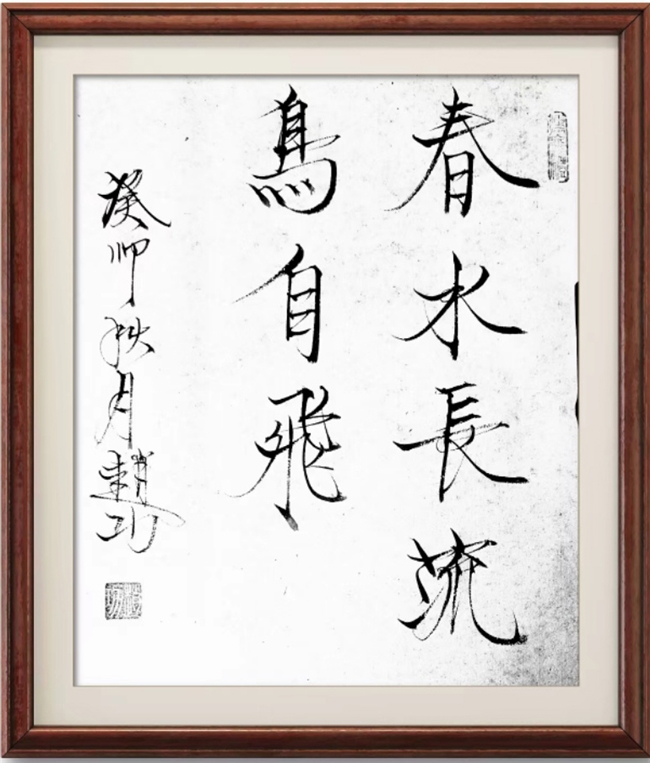 春水長流
鳥自飛
癸卯秋月